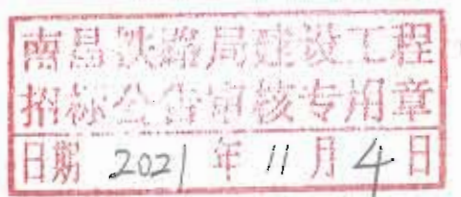 南昌铁路局建设工程
招标公告审核专用章
日期 2021 年 11 月 4 日